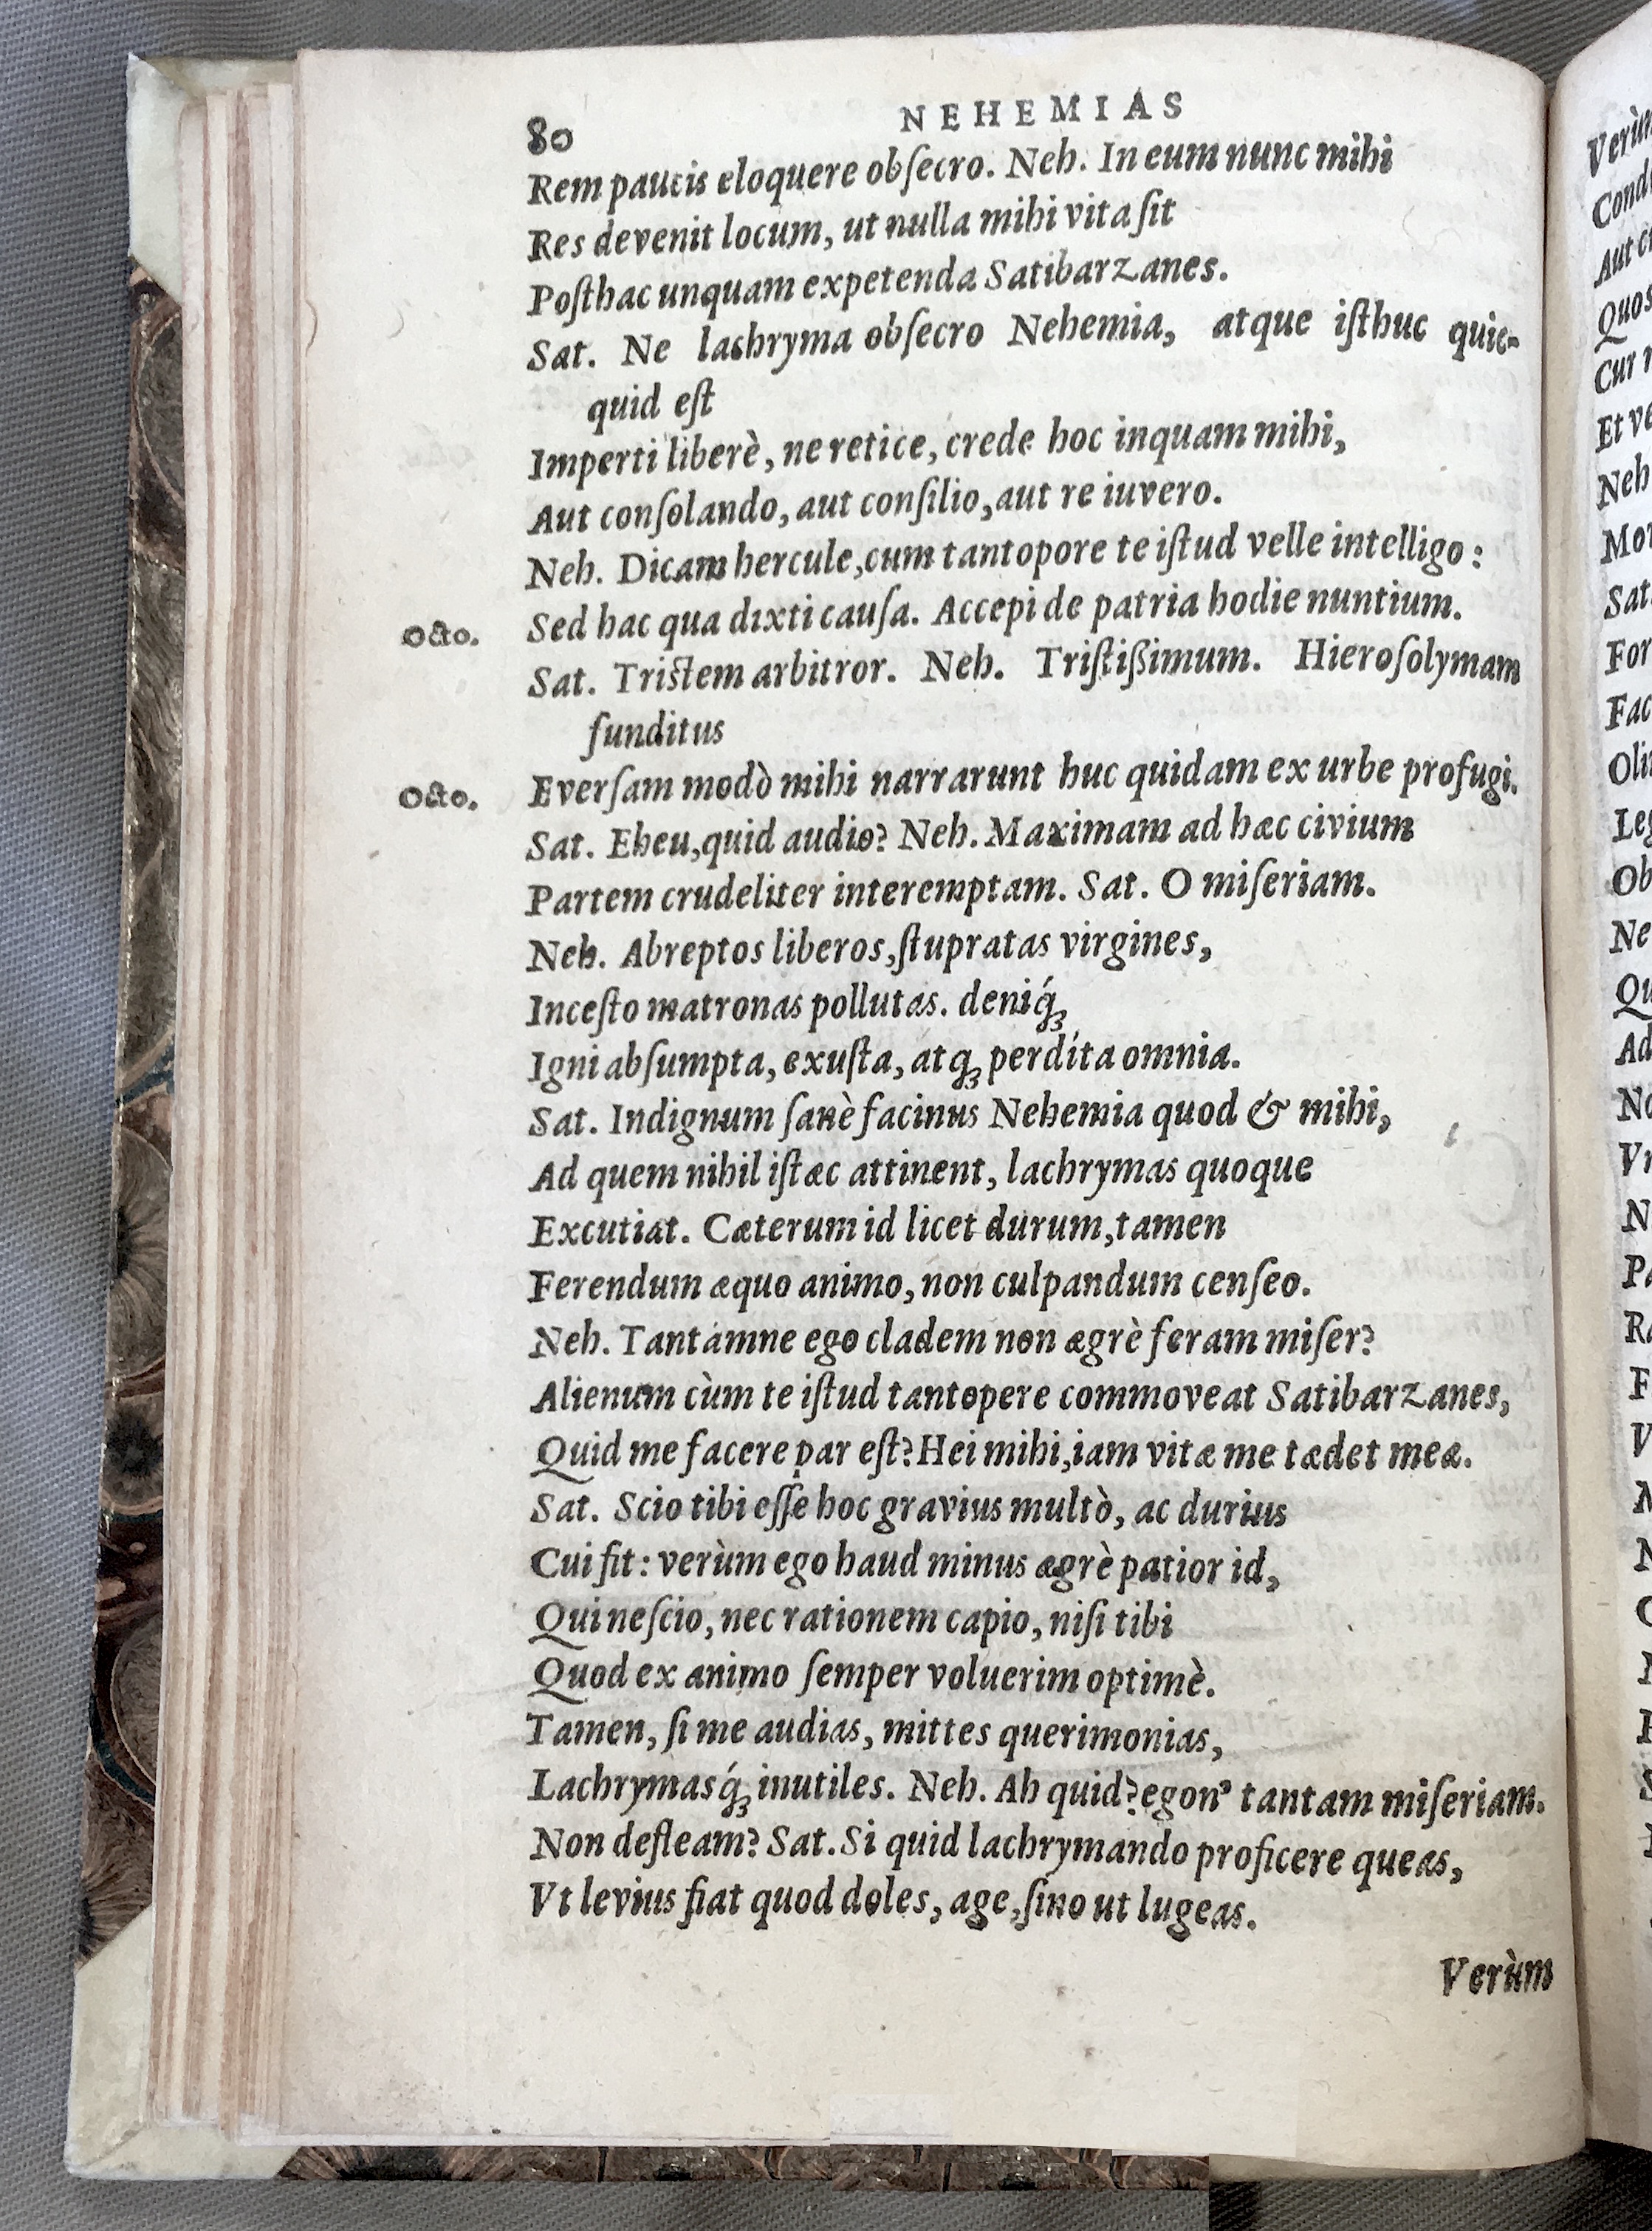 80 NEHEMIAS
Rem paucis eloquere obſecro. Neh. In eum nunc mihi
Res devenit locum, ut nulla mihi vita ſit
Poſthac unquam expetenda Satibarzanes.
Sat. Ne lachryma obſecro Nehemia, atque iſthuc quic-
quid eſt
Imperti liberè, ne retice, crede hoc inquam mihi,
Aut conſolando, aut conſilio, aut re iuvero.
Neh. Dicam hercule, cum tantopore te iſtud velle intelligo:
Octo. Sed hac qua dixti cauſa. Accepi de patria hodie nuntium.
Sat. Triſtem arbitror. Neh. Triſtißimum. Hieroſolymam
funditus
Octo. Everſam modò mihi narrarunt huc quidam ex urbe profugi.
Sat. Eheu, quid audio? Neh. Maximam ad hæc civium
Partem crudeliter interemptam. Sat. O miſeriam.
Neh. Abreptos liberos, ſtupratas virgines,
Inceſto matronas pollutas. deniq́ꝫ
Igni abſumpta, exuſta, atqꝫ perdita omnia.
Sat. Indignum ſanè facinus Nehemia quod & mihi,
Ad quem nihil iſtæc attinent, lachrymas quoque
Excutiat. Cæterum id licet durum, tamen
Ferendum æquo animo, non culpandum cenſeo.
Neh. Tantámne ego cladem non ægrè feram miſer?
Alienum cùm te iſtud tantopere commoveat Satibarzanes,
Quid me facere par eſt? Hei mihi, iam vitæ me tædet meæ.
Sat. Scio tibi eſſe hoc gravius multò, ac durius
Cui fit: verùm ego haud minus ægrè patior id,
Qui neſcio, nec rationem capio, niſi tibi
Quod ex animo ſemper voluerim optimè.
Tamen, ſi me audias, mittes querimonias,
Lachrymasq́ꝫ inutiles. Neh. Ah quid? egon' tantam miſeriam.
Non defleam? Sat. Si quid lachrymando proficere queas,
Vt levius fiat quod doles, age, ſino ut lugeas.
Verùm